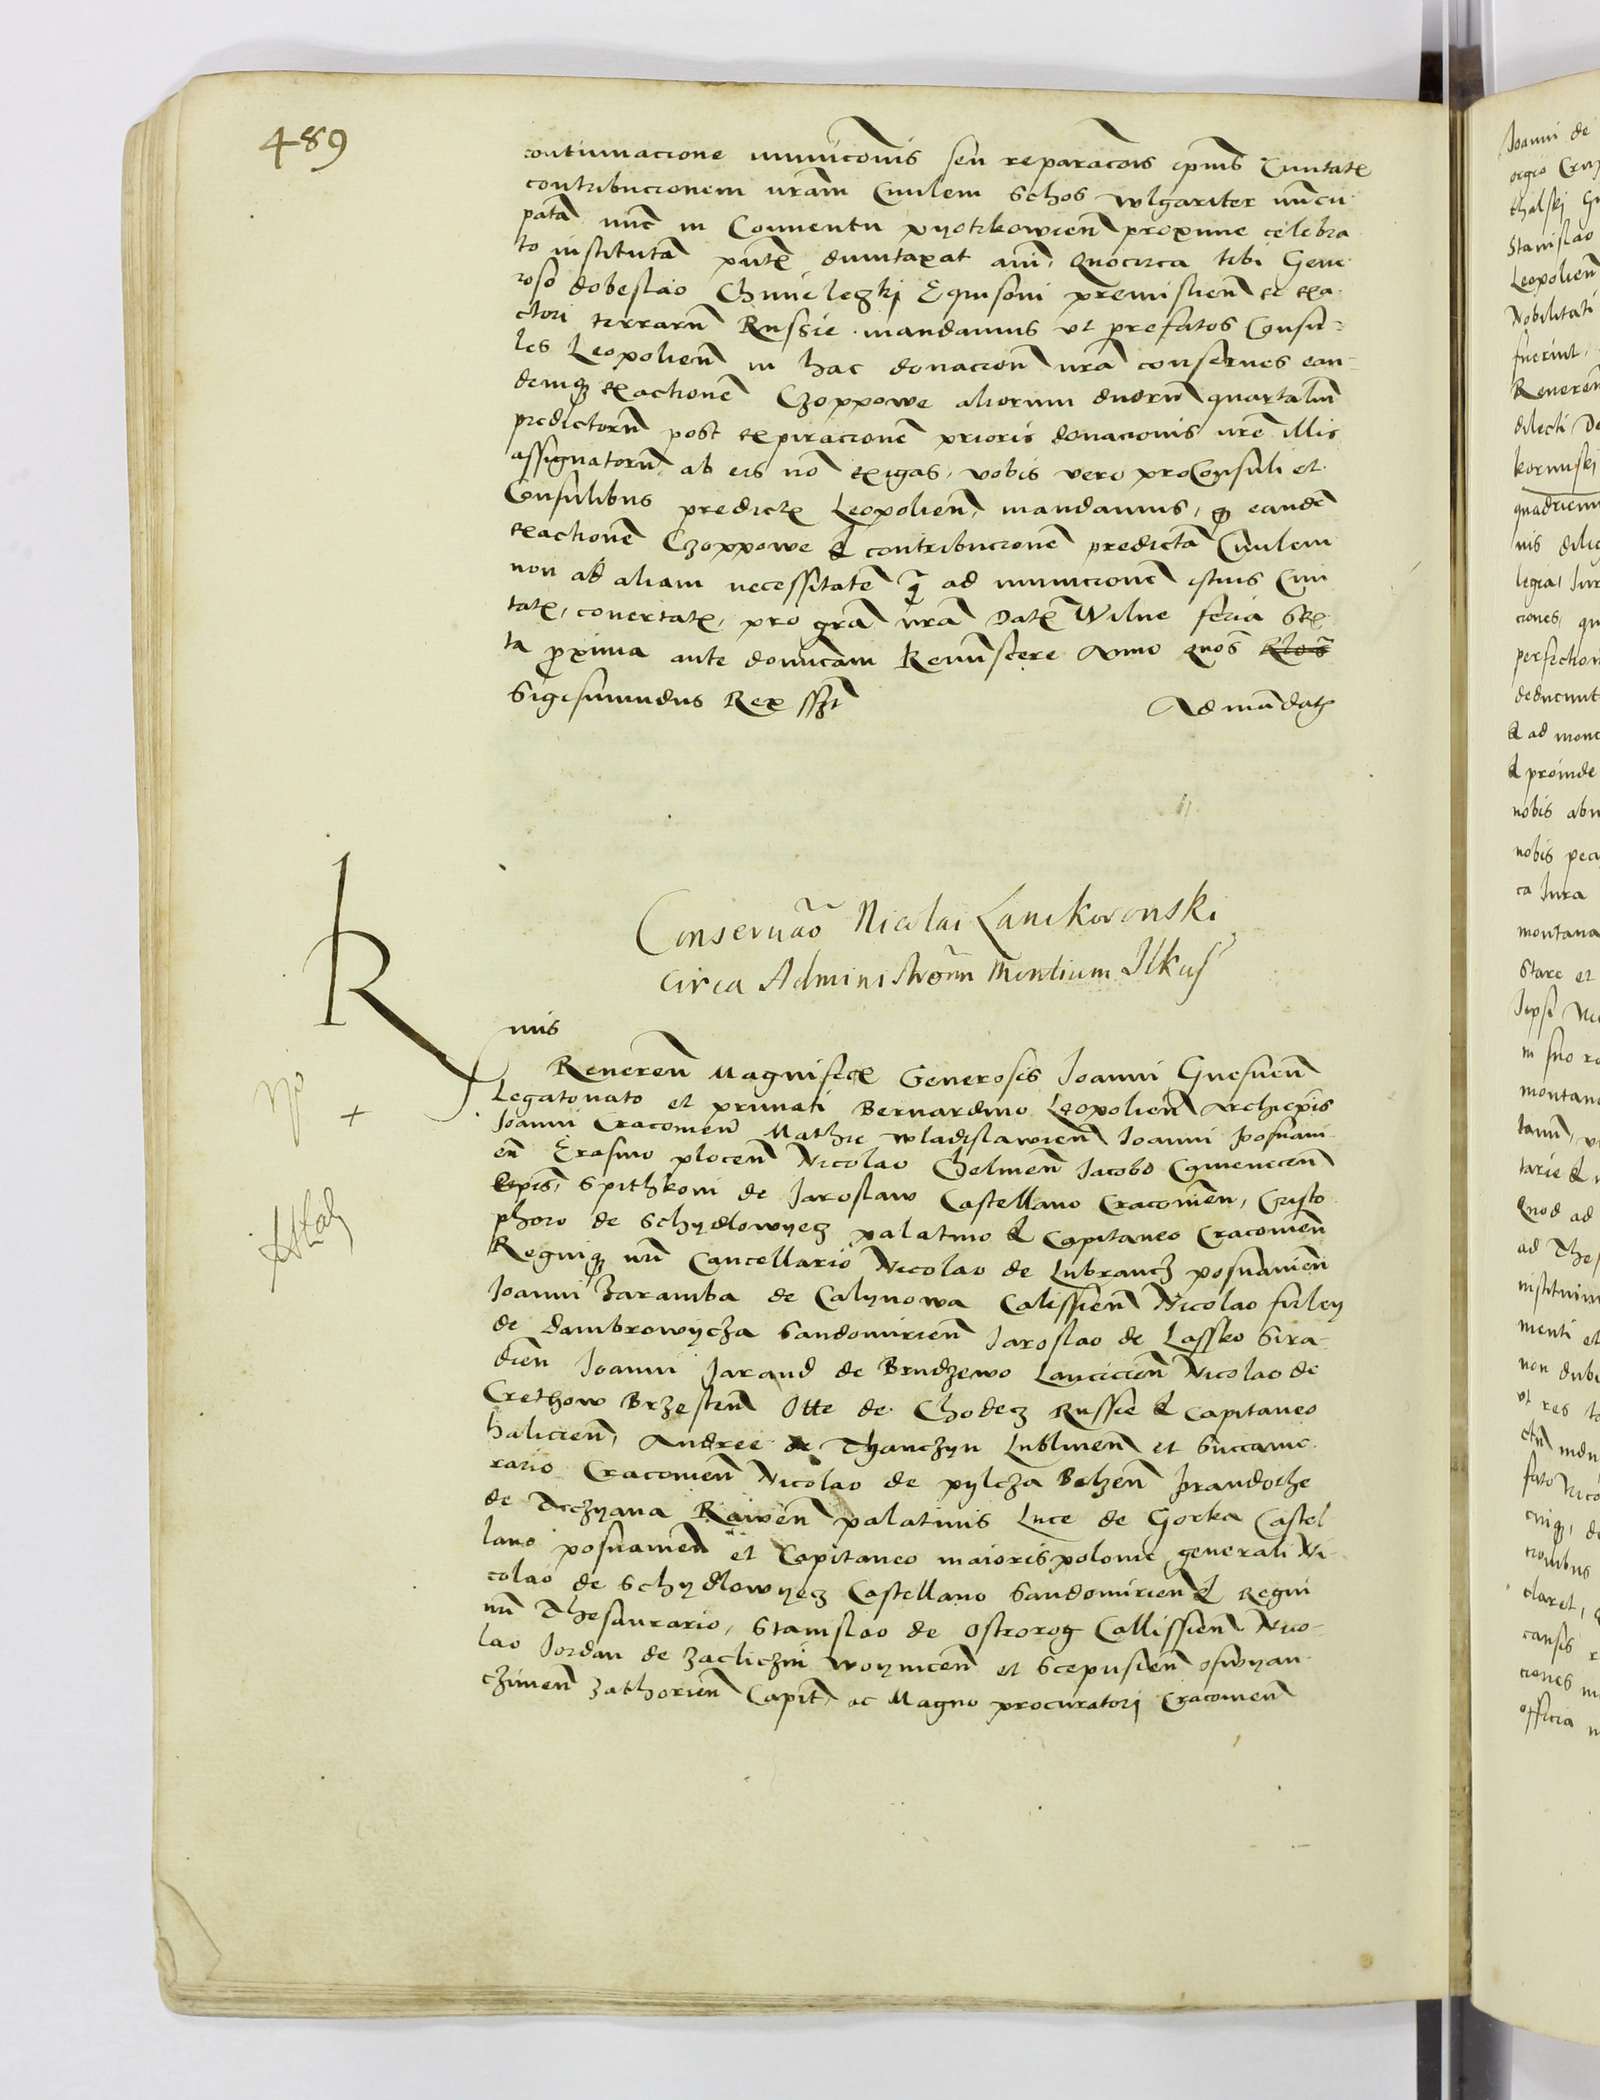 489
continuacione municonis seu reparacois ipius Ciuitatꝭ
contribucionem nram Ciuilem Schos wlgariter nuncu
patā nūc in Conuentu pyotrkowien proxime celebra
to institutā pñtꝭ dumtaxat anni, Quocirca tibi Gene
roso dobeslao Chmielegkj Equsoni premislien et exa
ctori terrarū Russie mandamus vt prefatos Consu-
les Leopolien in hac donacioñ nra conserues ean-
demqꝫ exactionē Czoppowe aliorum duorū quartaliū
predictorū post expiracionē prioris donacionis nrē illis
assignatorū ab eis nō exigas, vobis vero proConsuli et
Consulibus predictꝭ Leopolien, mandamus, qꝫ eandē
exactionē Czoppowe & contribucionē predictā Ciuilem
non ad aliam necessitatē q̃ ad municionē istius Ciui
tatꝭ, conertatꝭ, pro grā nrā Datꝭ Wilne feria Sex
ta proxima ante domīcam Reminiscere Anno quos
Sigismundus Rex sszt Ad mādatꝭ
Conseruāo Nicolai Lanckoronski
circa Administrōem Montium Ilkusꝭ
R
mis
Reueren Magnificꝭ Generosis Joanni Gnesnen
Legatonato et primati Bernardino Leopolien Archiepis
Joanni Cracouien Mathie wladislawien Joanni posnani
en Erasmo plocen Nicolao Chelmen Jacobo Camenecen
Epis, Spithkoni de Jaroslaw Castellano Cracouien, Cristo
phoro de Schydlowyecz palatino & Capitaneo Cracouien
Regniqꝫ nri Cancellario Nicolao de Lubrancz posnanien
Joanni Zaramba de Calynowa Calissien Nicolao firley
de dambrowycza Sandomirien Jaroslao de Lassko Sira-
dien Joanni Jarand de Brudzewo Lancicien Nicolao de
Crethow Brzesten Otte de Chodecz Russie & Capitaneo
halicien, Andree de Thanczyn Lublinen et Succame
rario Cracouien Nicolao de pylcza Belzen prandothe
de Trczyana Rawen palatinis Luce de Gorka Castel
lano posnanien et Capitaneo maioris polonie generali Ni
colao de Schydlowyecz Castellano Sandomirien & Regni
nri Thesaurario, Stanislao de Ostrorog Callissien Nico-
lao Jordan de zacliczin woynicen et Scepusien Oswyan
czimen Zathorien Capit, ac Magno procuratorj Cracouien
Joanni de
thalskj
Stanislao
Leopolien
Nobilitati
fuerint,
Reueren
dilecti
quadrien
perfection
deducunt
& ad mone
& proinde
nobis
nobis
ca Jura
montana
Stare et
Quod ad
ad
menti et
non
vt res
claret,
causis
officia